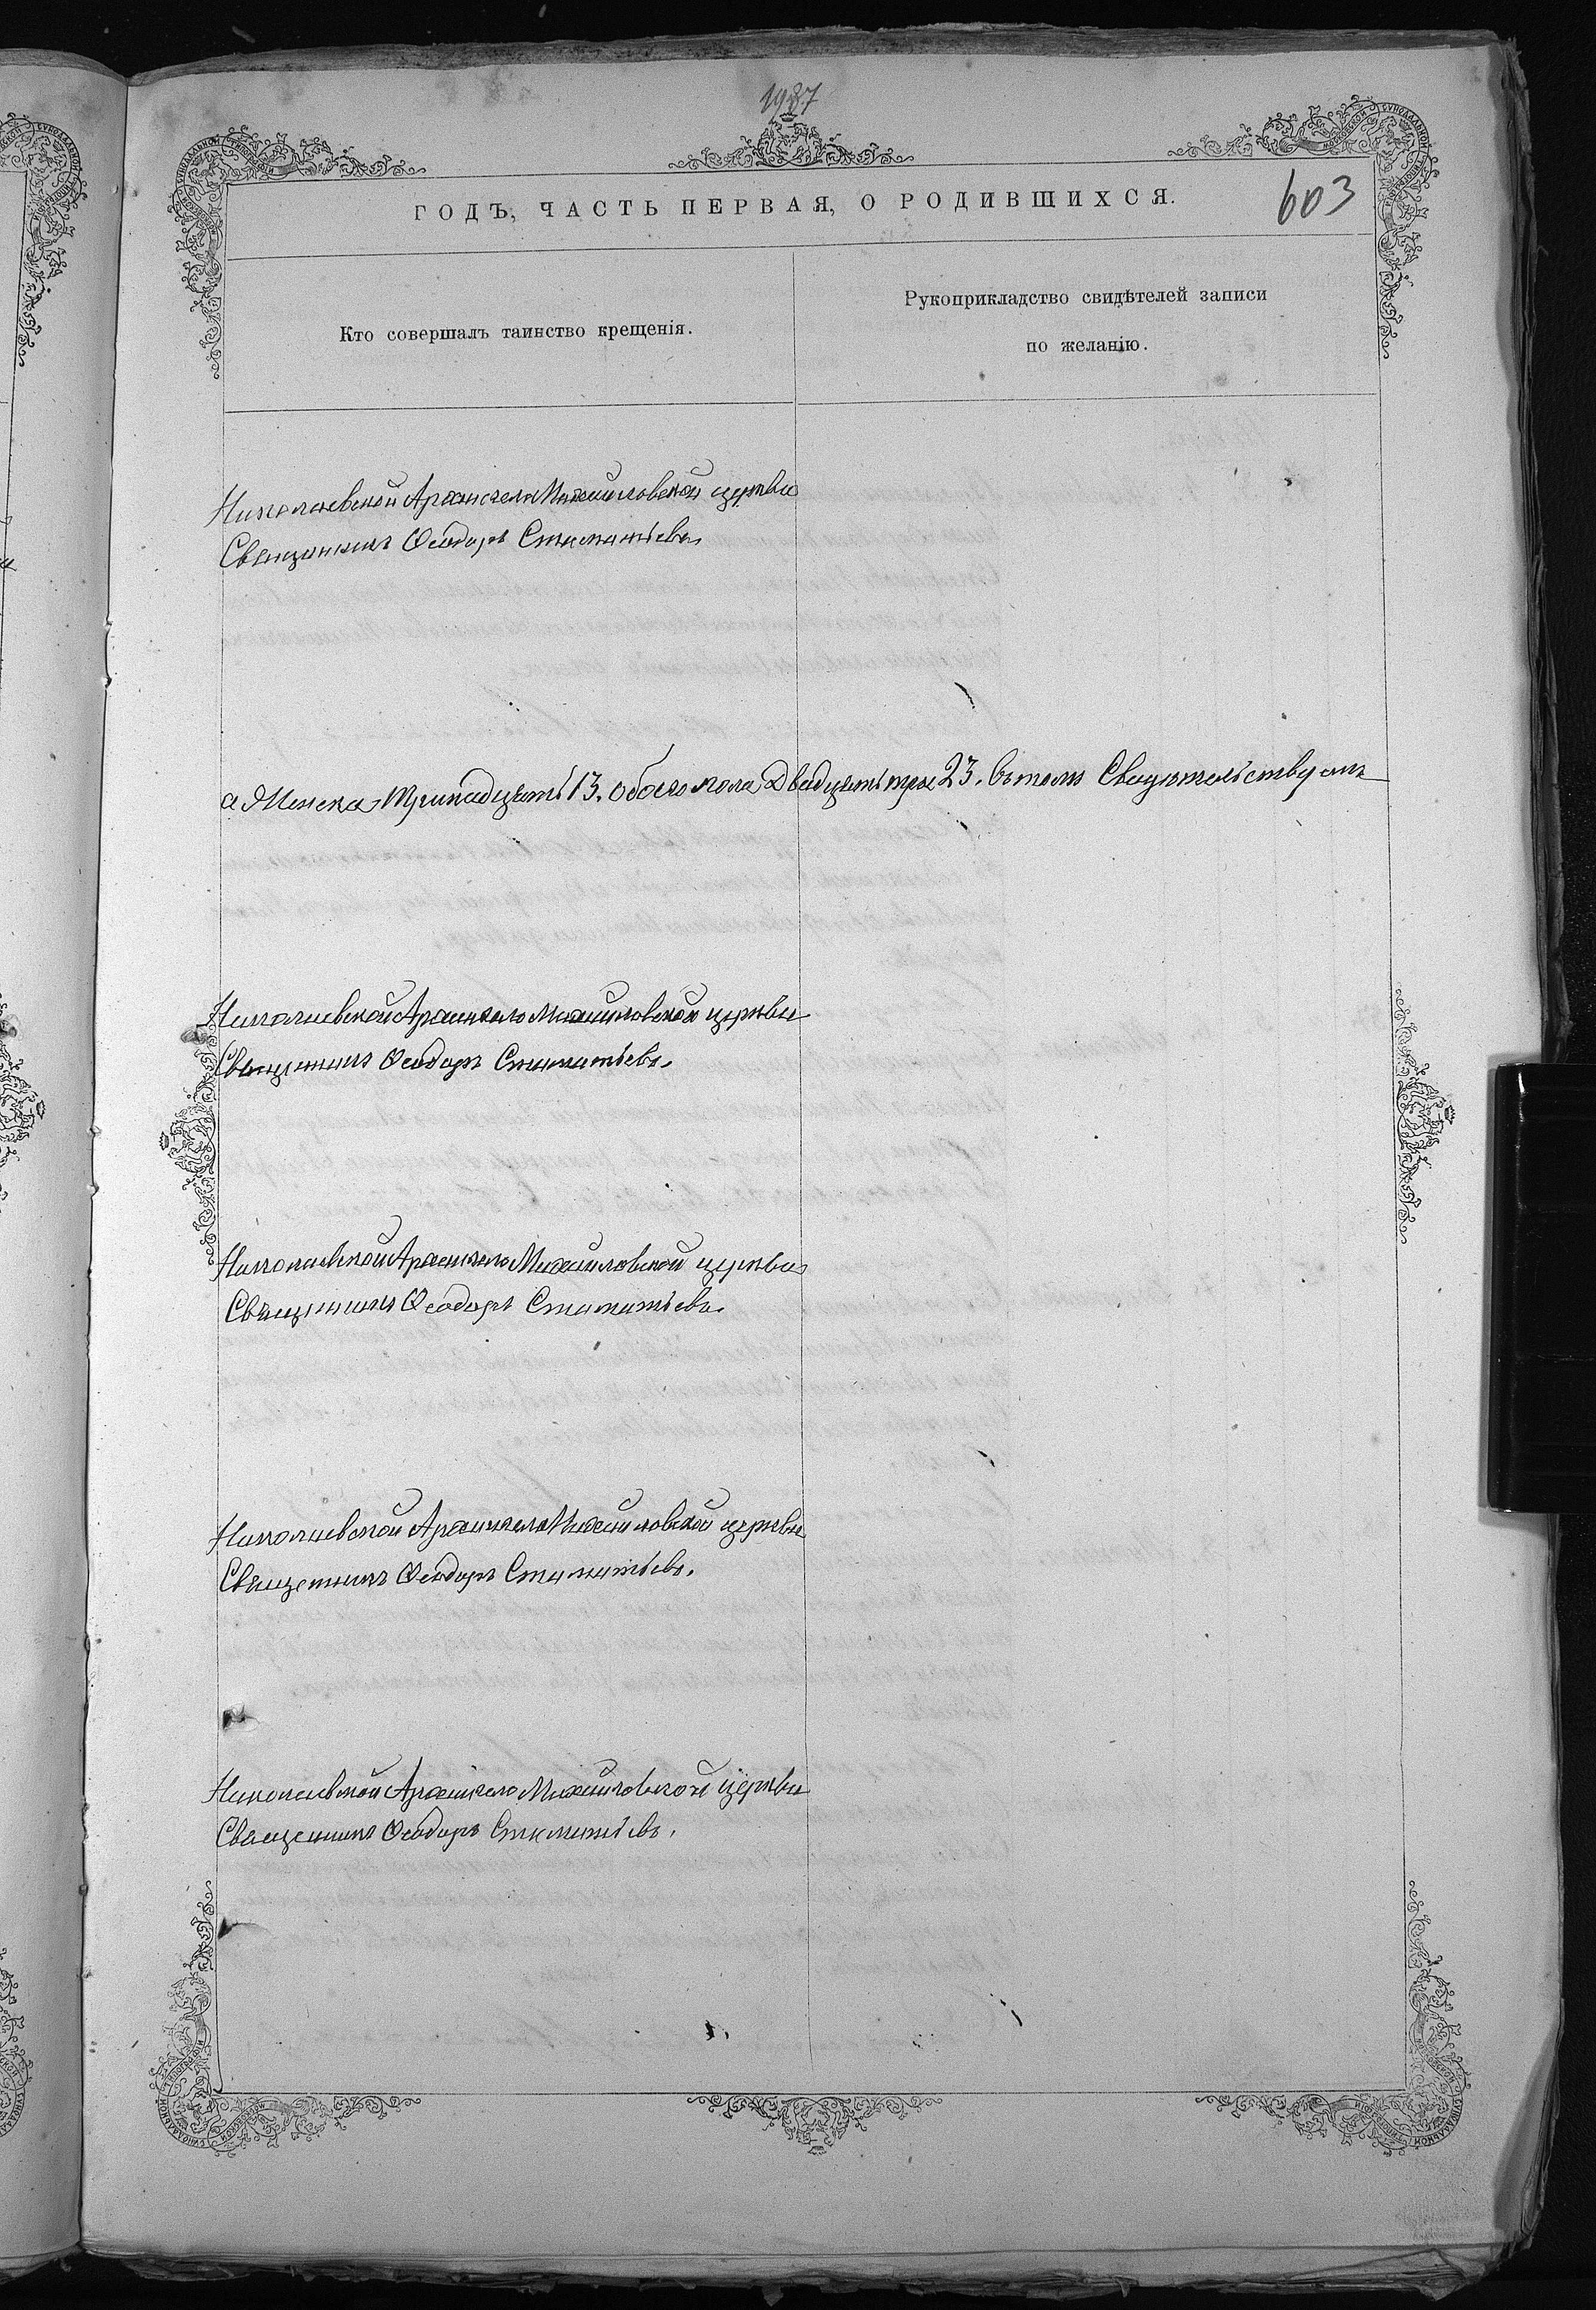 1987
603
ГОДЪ, ЧАСТЬ ПЕРВАЯ, О РОДИВШИХСЯ.
Кто совершалъ таинство крещенія.
Рукоприкладство свидѣтелей записи
по желанію.
Николаевской Архангело Михайловской церкви
Священникъ Ѳеодоръ Стаматіевъ.
а Женска Тринадцать 13. обоего пола Двадцать три 23. Въ томъ Свидѣтельствуемъ
Николаевской Архангело Михайловской церкви
Священникъ Ѳеодоръ Стаматіевъ.
Николаевской Архангело Михайловской церкви
Священникъ Ѳеодоръ Стаматіевъ.
Николаевской Архангело Михайловской церкви
Священникъ Ѳеодоръ Стаматіевъ.
Николаевской Архангело Михайловской церкви
Священникъ Ѳеодоръ Стаматіевъ.